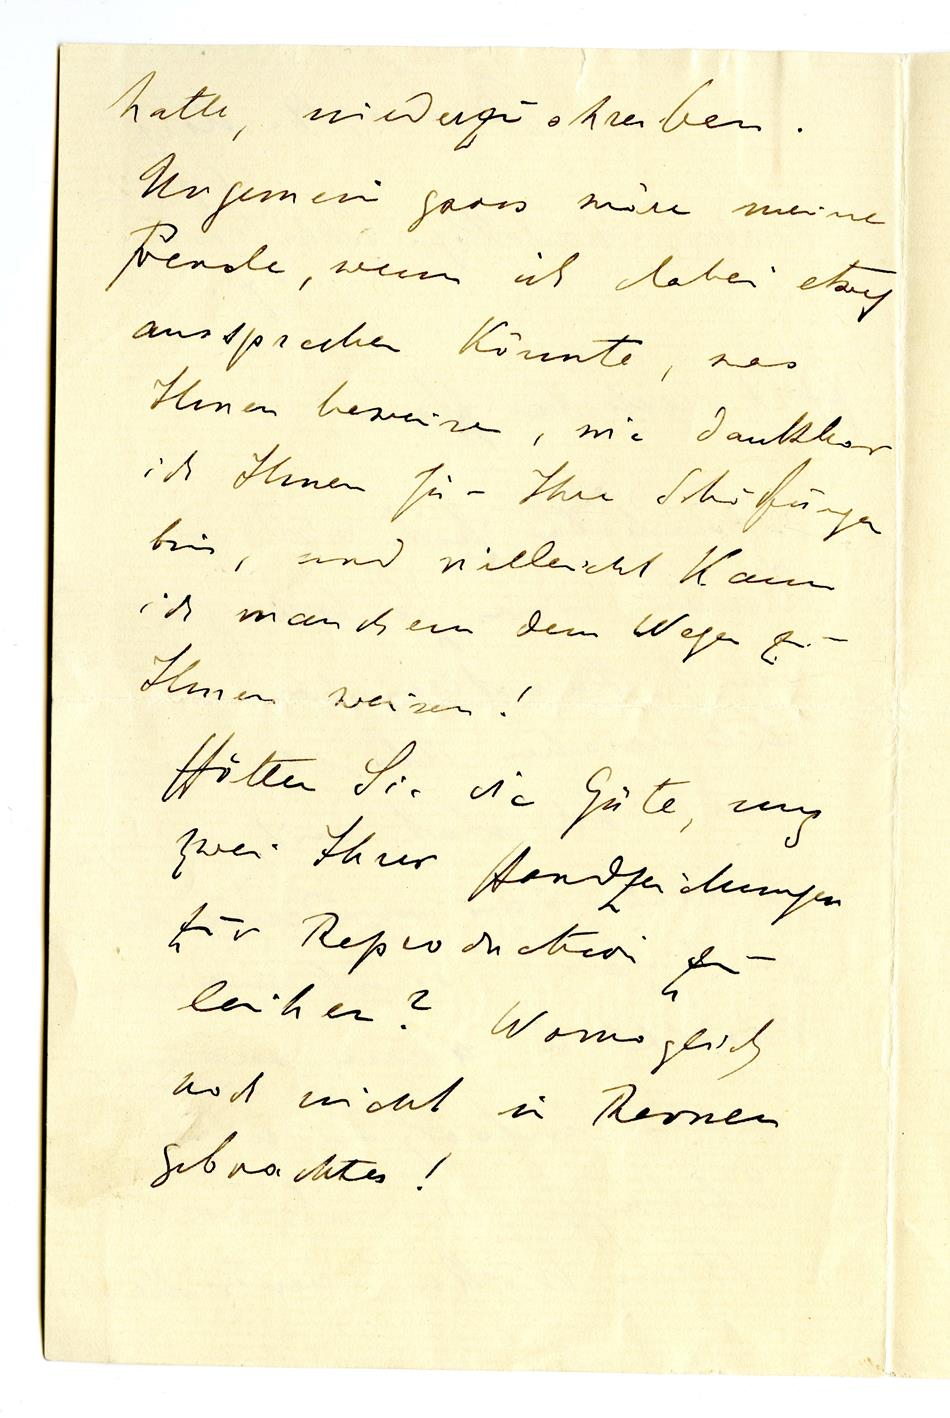 hatte, niederzuschreiben.
Ungemein gross wäre meine
Freude, wenn ich dabei etwas
aussprechen könnte, was
Ihnen beweisen, wie dankbar
ich Ihnen für Ihre Schöpfungen
bin, und vielleicht kann
ich manchem den Wegen zu
Ihnen weisen!
Hätten Sie die Güte, uns
zwei Ihrer Handzeichnungen
zur Reproduction zu
leihen? Womöglich
noch nicht in Revuen
gebrachtes!